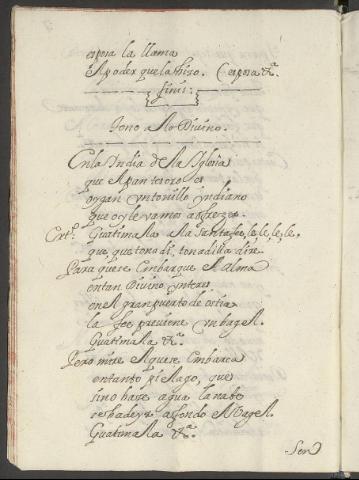 espera la llama
el poder que la hizo. (espera &.ª
finis.
Tono A lo Divino.
En la India de la Iglesia
que el pan tesoro es
oygan un tonillo yndiano
que oy le vamos a ofrezer.
Guatimala la Santa fe, le, le, le, le,
que, que tonadi, tonadilla dire.
Para que se embarque el alma
en tan Divino ynteres
en el gran puerto de ostia
la fee previene un bagel.
Guatimala &.ª
Pero mire el que se embarca
en tanto pielago, que
si no haze agua la nabe
se ha de yr a fondo el bagel.
Guatimala &.ª
Ser